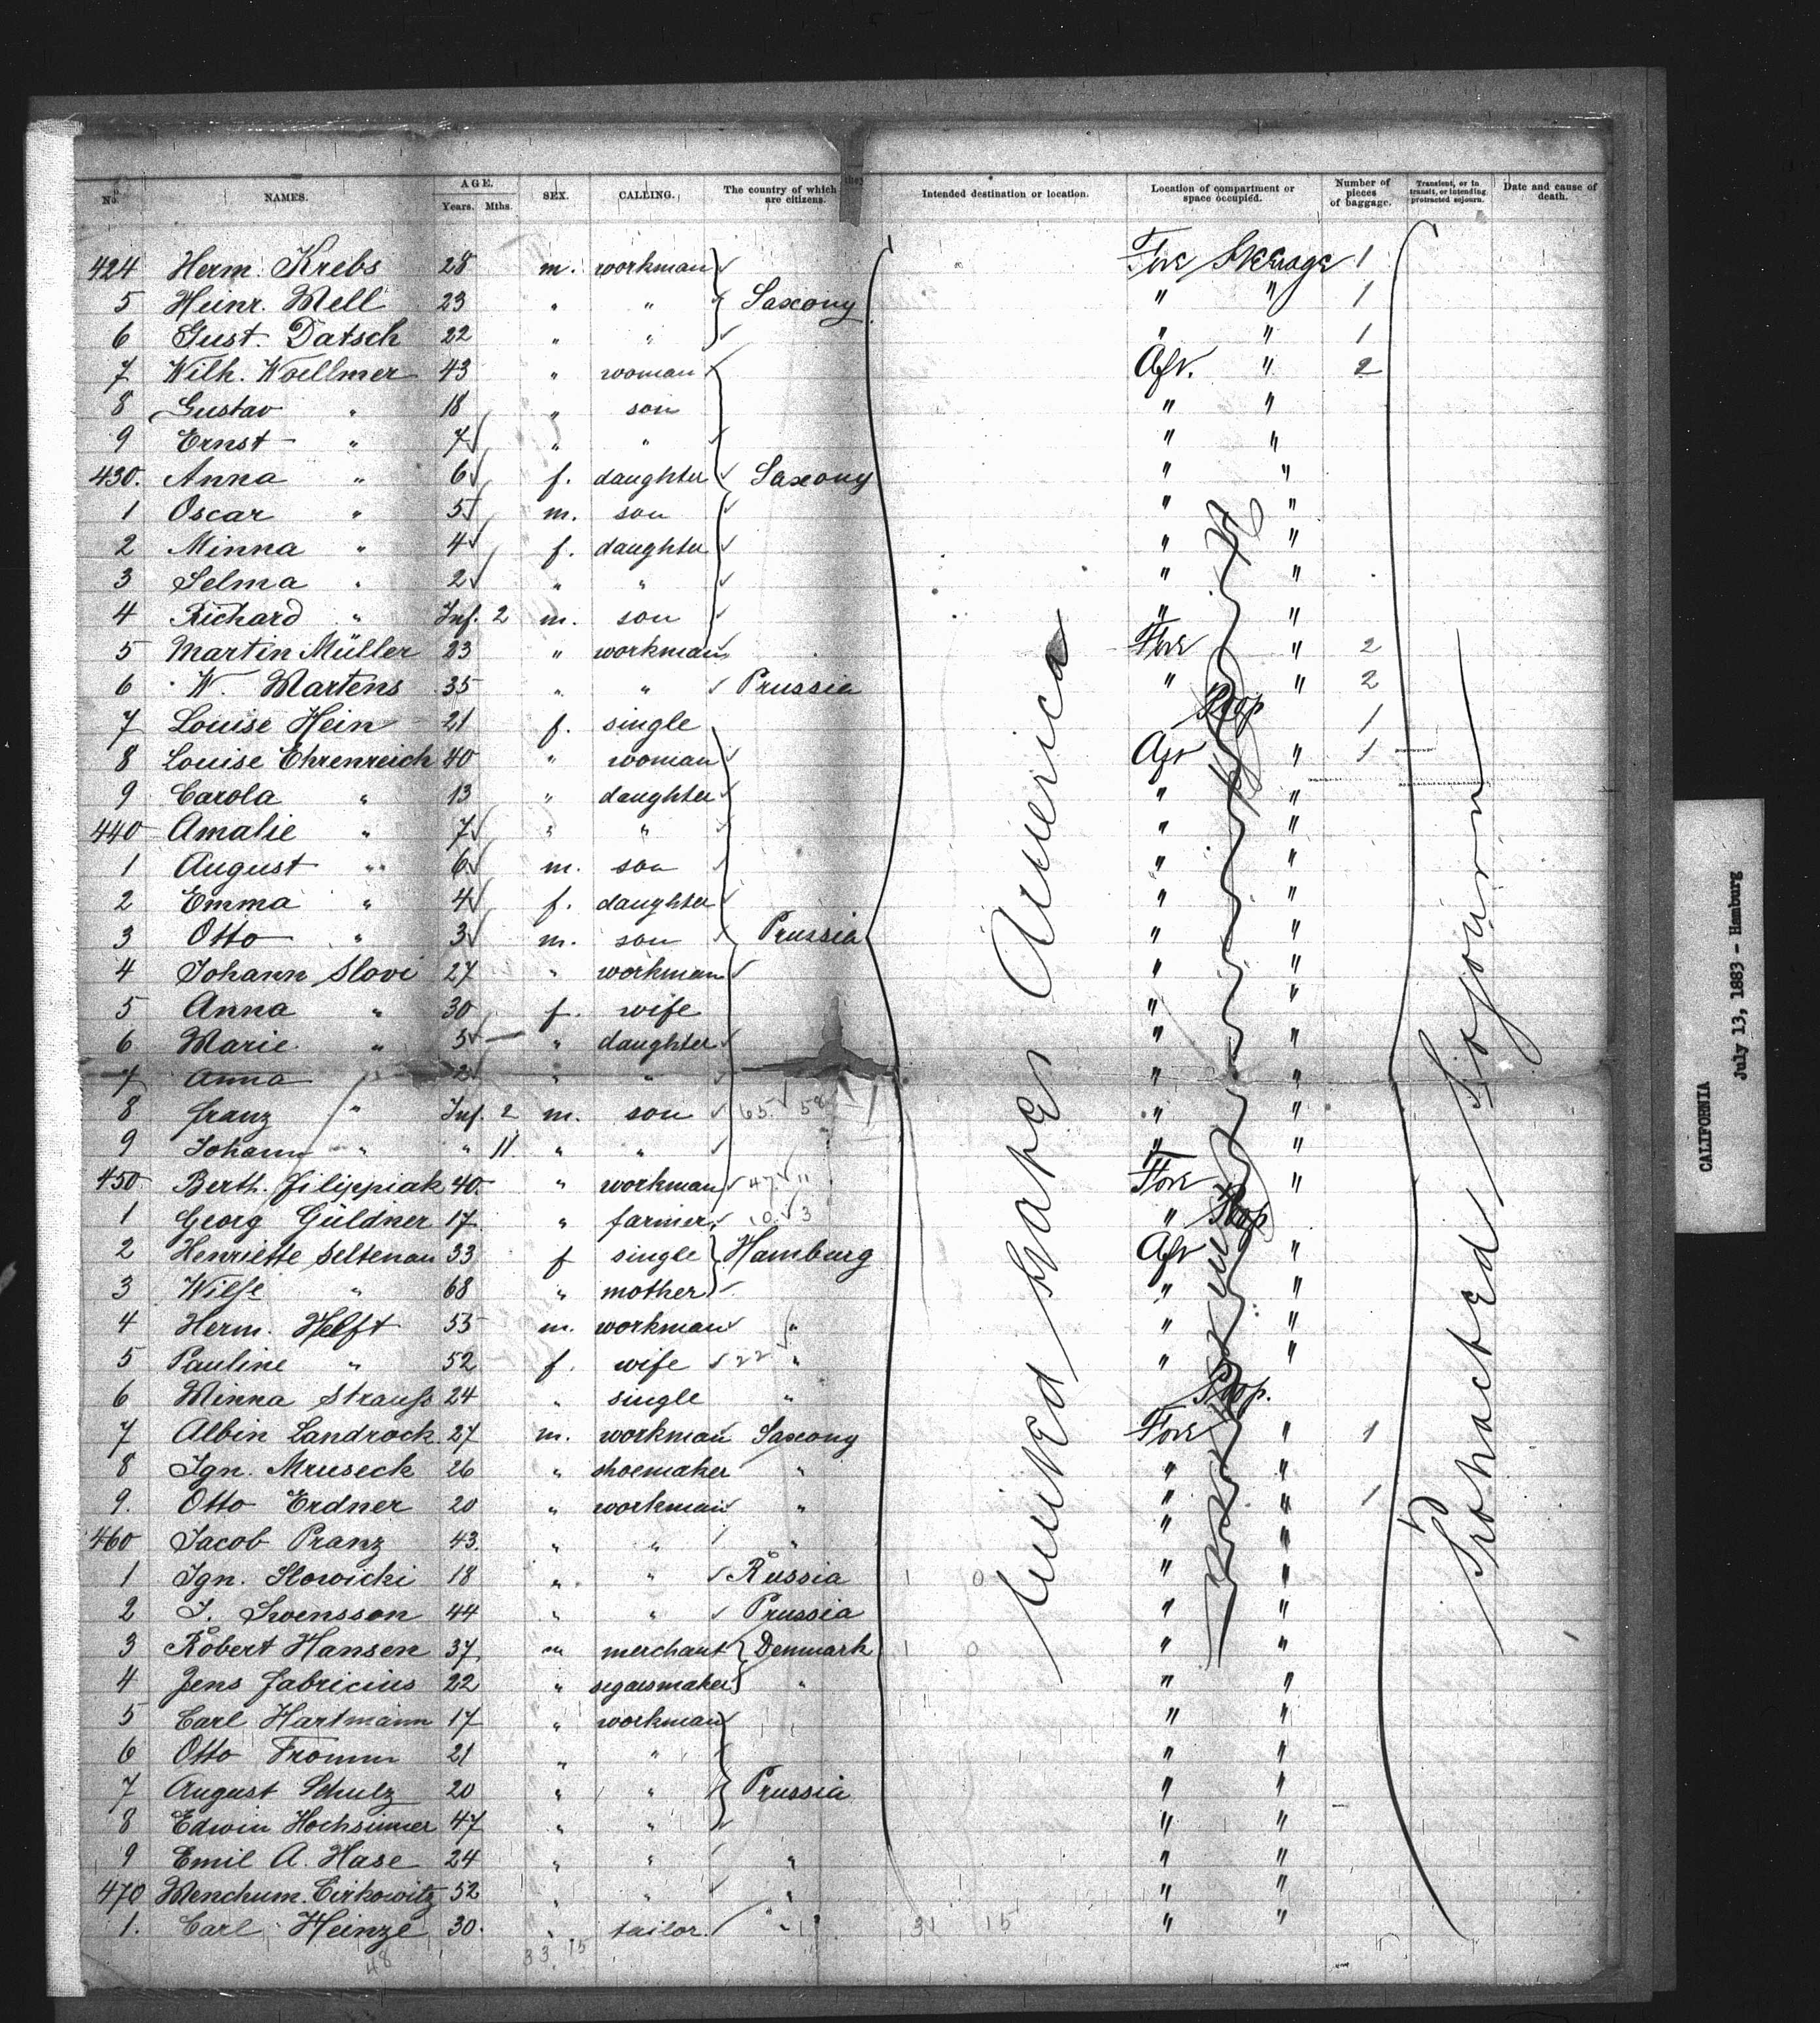 No. NAMES. AGE. Years. Mths. SEX. CALLING. The country of which they are citizens. Intended destination or location. Location of compartment or space occupied. Number of pieces of baggage. Transient, or in transit, or intending protracted sojourn. Date and cause of death.
424 Herm. Krebs 28 m. workman Fore Steerage 1
5 Heinr. Mell 23 " " Saxony " " 1
6 Gust. Datsch 22 " " " " 1
7 Wilh. Woellmer 43 " woman Aft. " 2
8 Gustav " 18 " son " "
9 Ernst " 7 " " " "
430. Anna " 6 f. daughter Saxony " "
1 Oscar " 5 m. son " "
2 Minna " 4 f. daughter " "
3 Selma " 2 " " " "
4 Richard " Inf. 2 m. son " "
5 Martin Müller 23 " workman Fore " 2
6 W. Martens 35 " " Prussia " " 2
7 Louise Hein 21 f. single 1
8 Louise Ehrenreich 40 " woman Aft " 1
9 Carola " 13 " daughter " "
440 Amalie " 7 " " " "
1 August " 6 m. son " "
2 Emma " 4 f. daughter " "
3 Otto " 3 m. son Prussia " "
4 Johann Slovi 27 " workman " "
5 Anna " 30 f. wife " "
6 Marie " 5 " daughter " "
7 Anna " 2 " " " "
8 Franz " Inf. 2 m. son " "
9 Johann " " 11 " " " "
450 Berth. Filippiak 40 " workman Fore "
1 Georg Güldner 17 " farmer "
2 Henriette Seltenau 33 f single Hamburg Aft "
3 " 68 " mother " "
4 Herm. Helft 55 m. workman " " "
5 Pauline " 52 f. wife " " "
6 Minna Strauß 24 " single "
7 Albin Landrock 27 m. workman Saxony Fore " 1
8 Ign. Mruseck 26 " shoemaker " " "
9. Otto Erdner 20 " workman " " " 1
460 Jacob Pranz 43 " " " " "
1 Ign. Slowicki 18 " " Russia " "
2 J. Svensson 44 " " Prussia " "
3 Robert Hansen 37 m merchant Denmark " "
4 Jens Fabricius 22 " segarsmaker " " "
5 Carl Hartmann 17 " workman " "
6 Otto Fromm 21 " " " "
7 August Schulz 20 " " Prussia " "
8 Edwin Hochsimer 47 " " " "
9 Emil A. Hase 24 " " " " "
470 Menchum. Cirkowitz 52 " " " " "
1. Carl Heinze 30 " tailor " " "
United States America
Protracted Sojourn
CALIFORNIA
July 13, 1883 - Hamburg